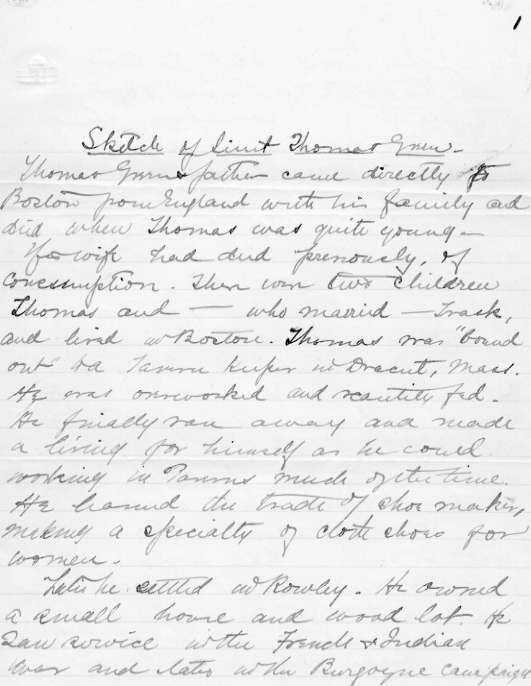 1
Sketch of Lieut Thomas Green.
Thomas Green's father came directly to
Boston from England with his family and
died when Thomas was quite young.
His wife had died previously, of
consumption. There were two children
Thomas and — who married — Trask,
and lived in Boston. Thomas was "bound
out" to a Tavern keeper in Dracut, Mass.
He was overworked and scantily fed.
He finally ran away and made
a living for himself as he could
working in Taverns much of the time.
He learned the trade of shoe maker,
making a specialty of cloth shoes for
women.
Later he settled in Rowley. He owned
a small house and wood lot. He
saw service in the French & Indian
War and later in the Burgoyne campaign